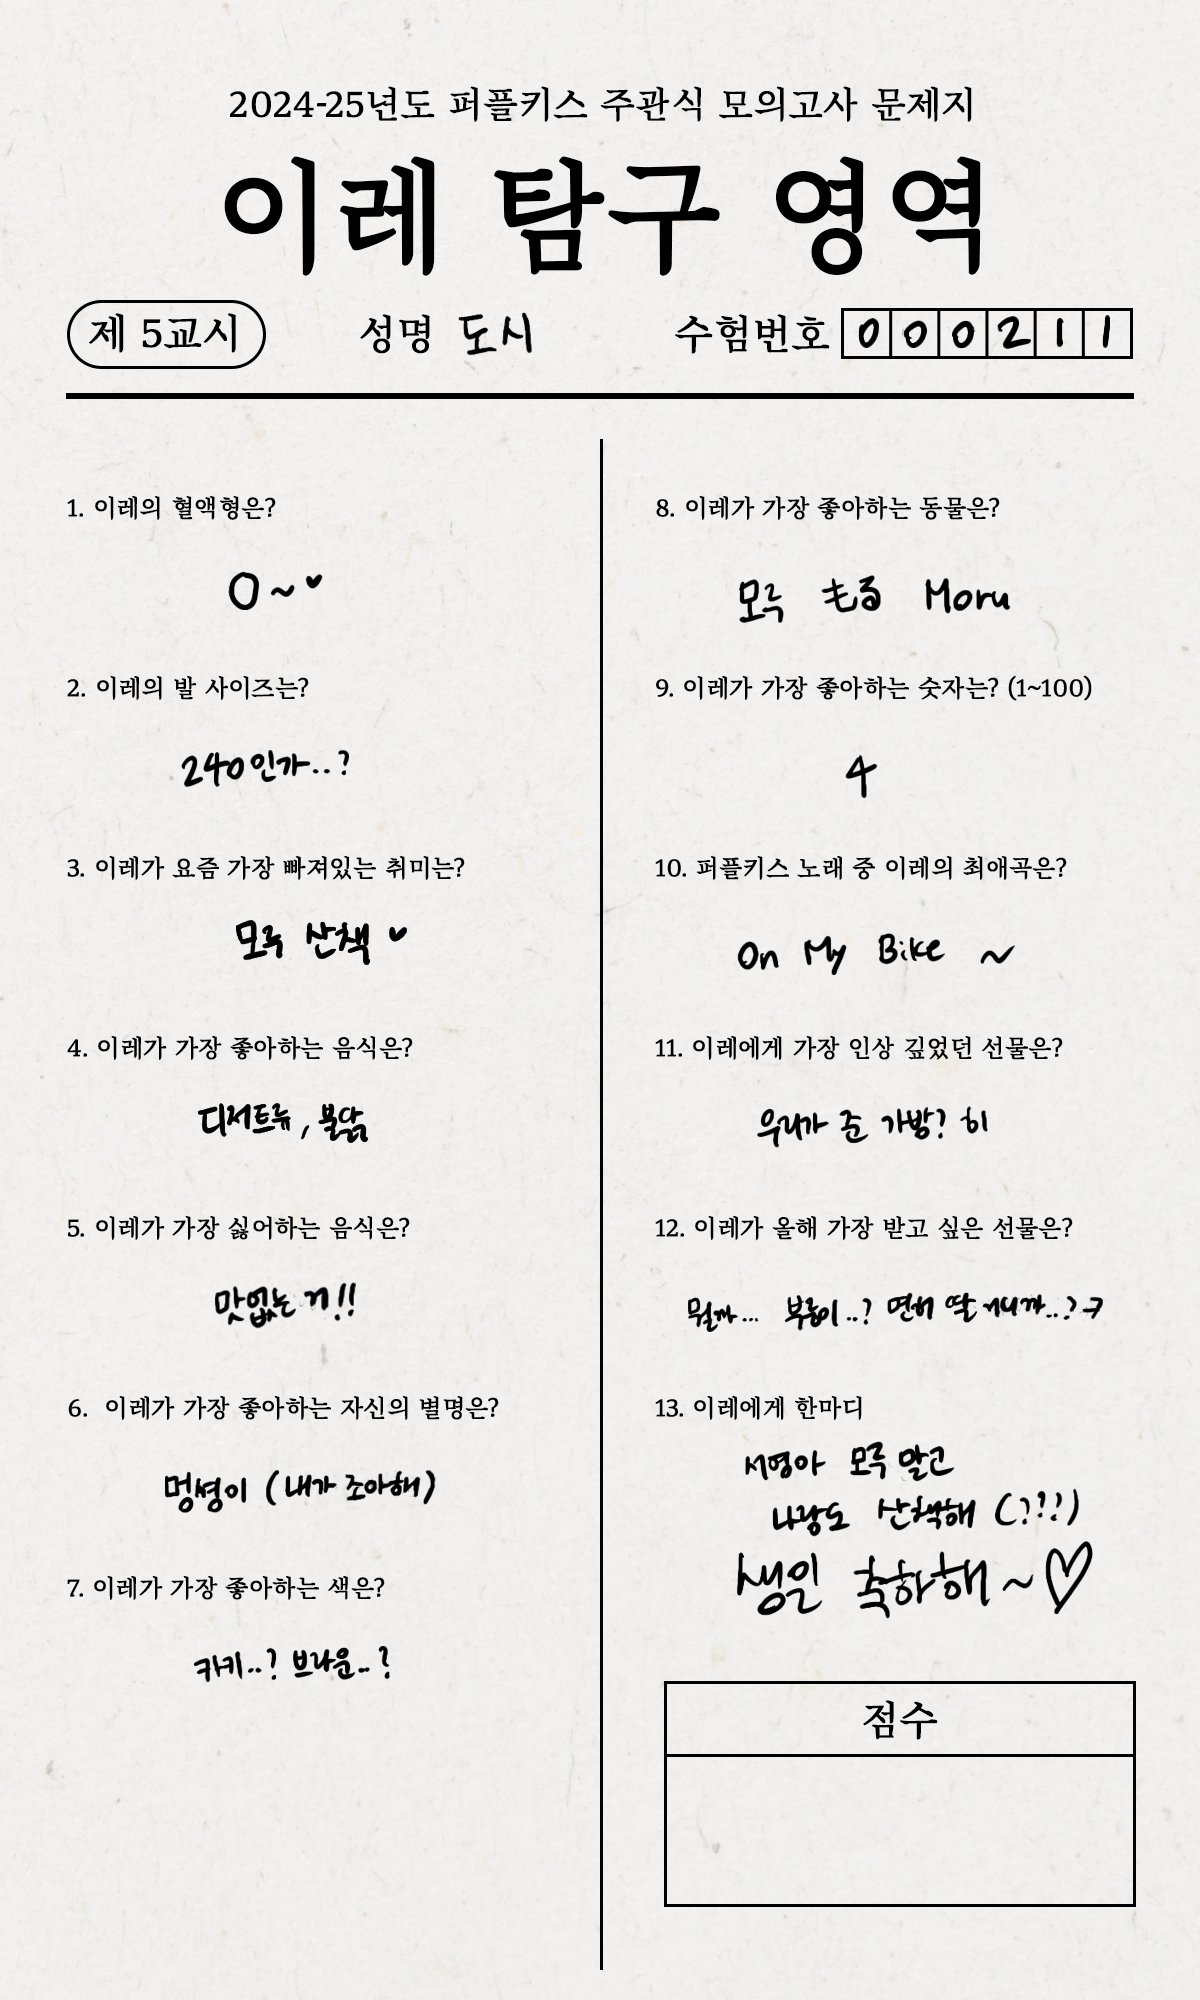 2024-25년도 퍼플키스 주관식 모의고사 문제지
이레 탐구 영역
제 5교시
성명 도시
수험번호 000211
1. 이레의 혈액형은?
O~♥
2. 이레의 발 사이즈는?
240인가..?
3. 이레가 요즘 가장 빠져있는 취미는?
모루 산책 ♥
4. 이레가 가장 좋아하는 음식은?
디저트류, 불닭
5. 이레가 가장 싫어하는 음식은?
맛없는 거!!
6. 이레가 가장 좋아하는 자신의 별명은?
멍셩이 (내가 조아해)
7. 이레가 가장 좋아하는 색은?
카키..? 브라운..?
8. 이레가 가장 좋아하는 동물은?
모루 もる Moru
9. 이레가 가장 좋아하는 숫자는? (1~100)
4
10. 퍼플키스 노래 중 이레의 최애곡은?
On My Bike ~
11. 이레에게 가장 인상 깊었던 선물은?
우리가 준 가방? 히
12. 이레가 올해 가장 받고 싶은 선물은?
뭘까... 부릉이..? 면허 딸 거니까..?
13. 이레에게 한마디
서영아 모루 말고
나랑도 산책해 (???)
생일 축하해~♡
점수